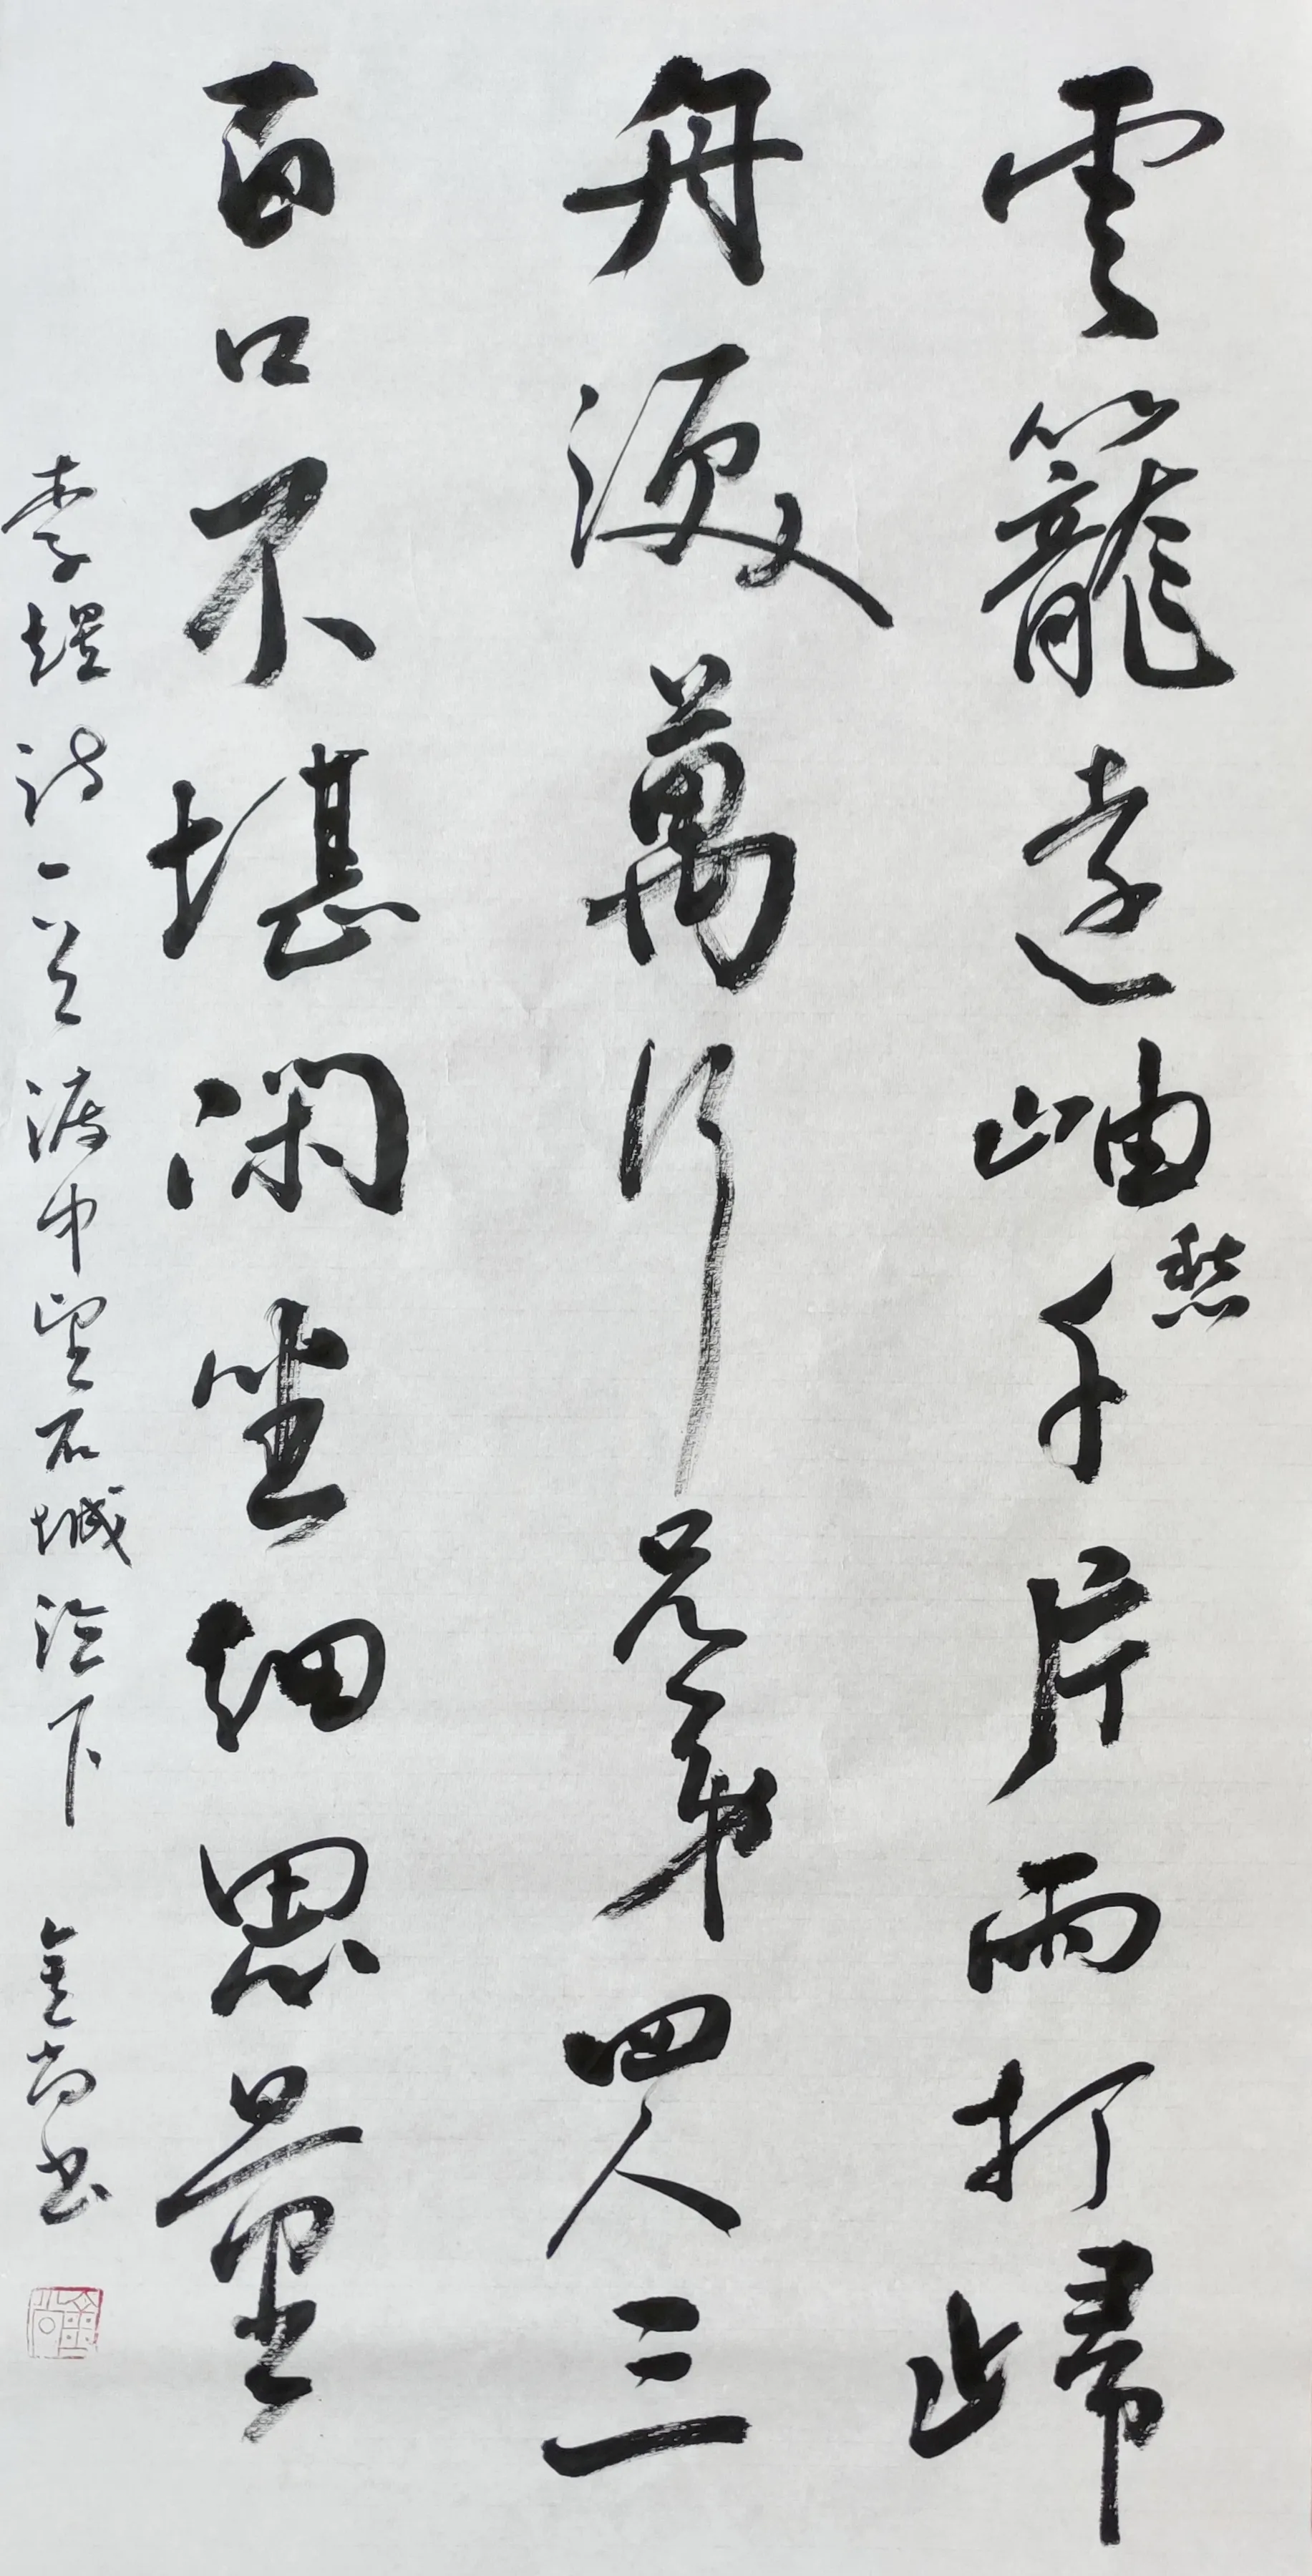 雲籠遠岫愁千片雨打歸
舟淚萬行兄弟四人三
百口不堪閑坐細思量
李煜詩一首渡中望石城泣下 金尚書
金尚